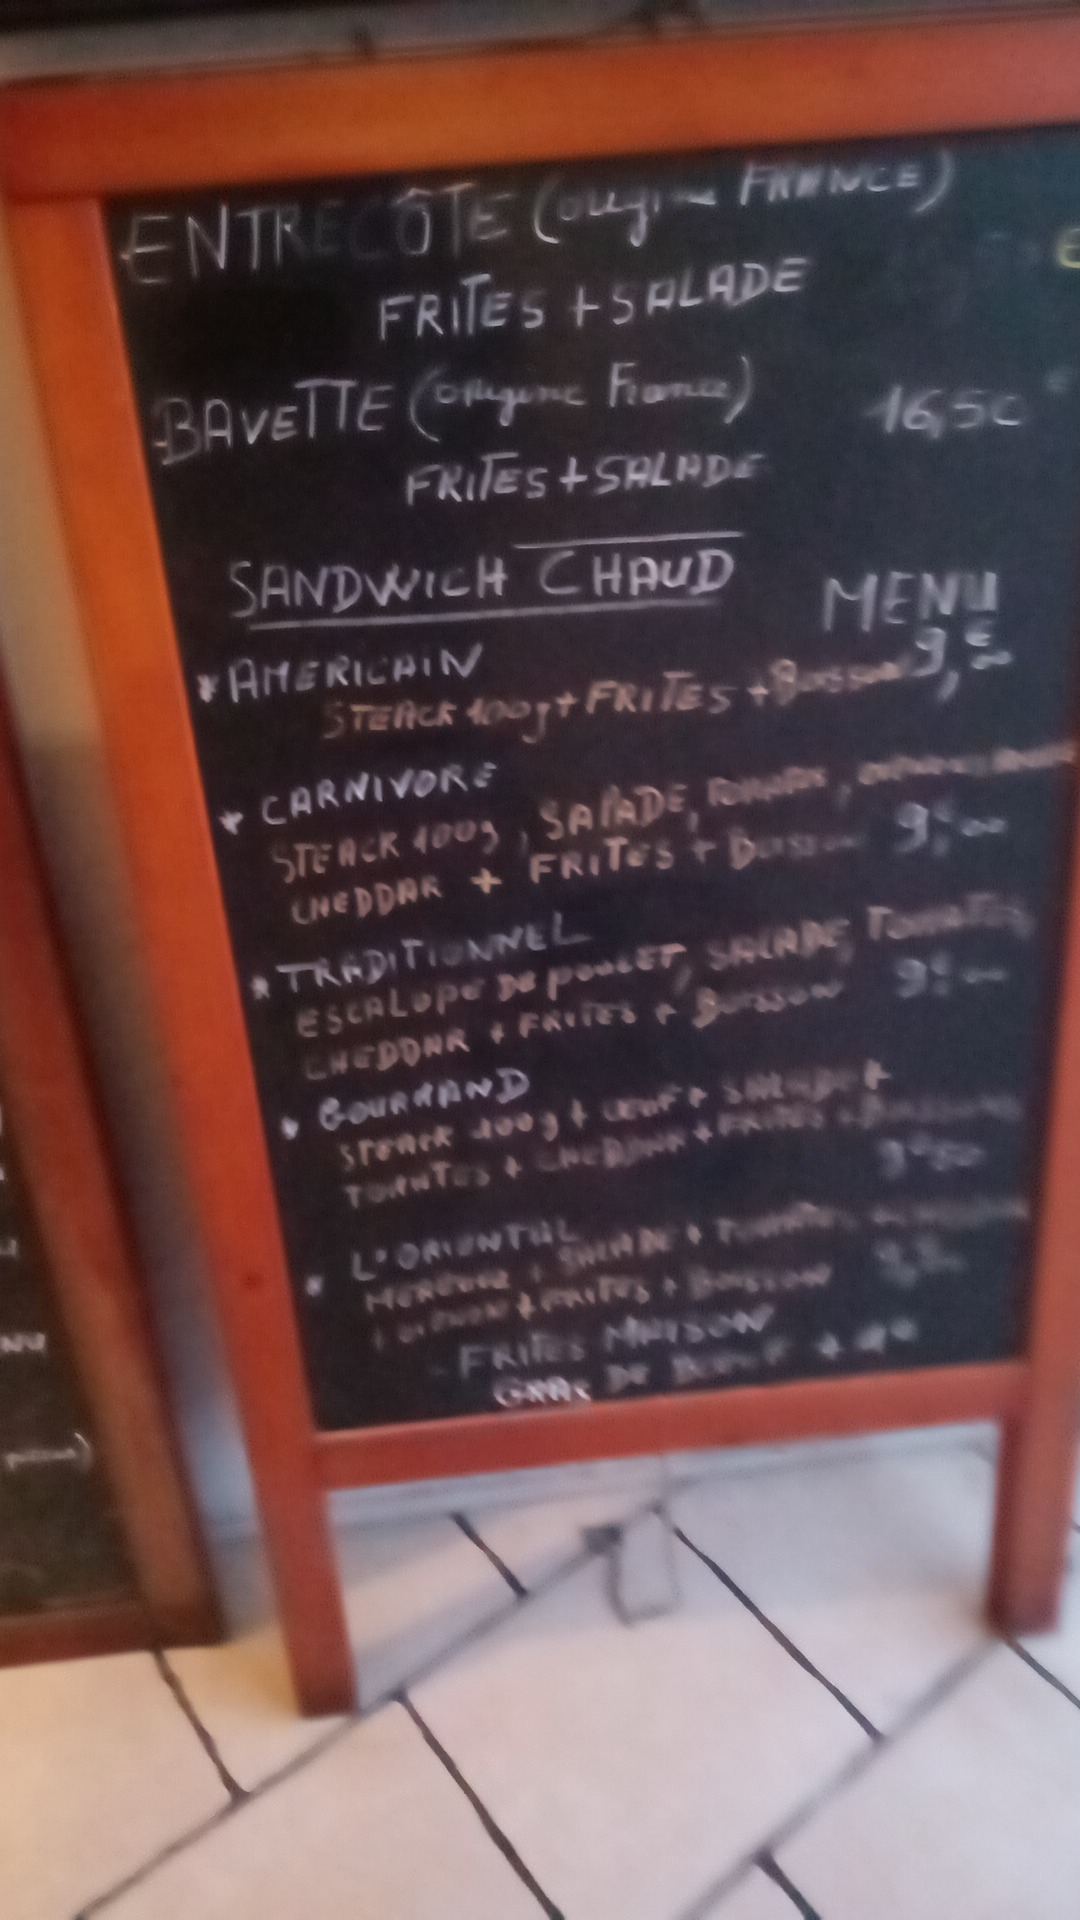 ENTRECÔTE (origine FRANCE)
FRITES + SALADE
BAVETTE (origine France) 16,50 €
FRITES + SALADE
SANDWICH CHAUD
MENU
* AMERICAIN 9,€00
STEACK 100g + FRITES + Boisson
* CARNIVORE
STEACK 100g, SALADE, TOMATES,
CHEDDAR + FRITES + Boisson 9,€00
* TRADITIONNEL
ESCALOPE DE POULET, SALADE, TOMATES,
CHEDDAR + FRITES + Boisson 9€00
* GOURMAND
STEACK 100g + ŒUF + SALADE +
TOMATES + CHEDDAR + FRITES + BOISSON
9€50
* L'ORIENTAL
MERGUEZ + SALADE + TOMATES
+ FRITES + BOISSON
- FRITES MAISON
GRAS DE BŒUF